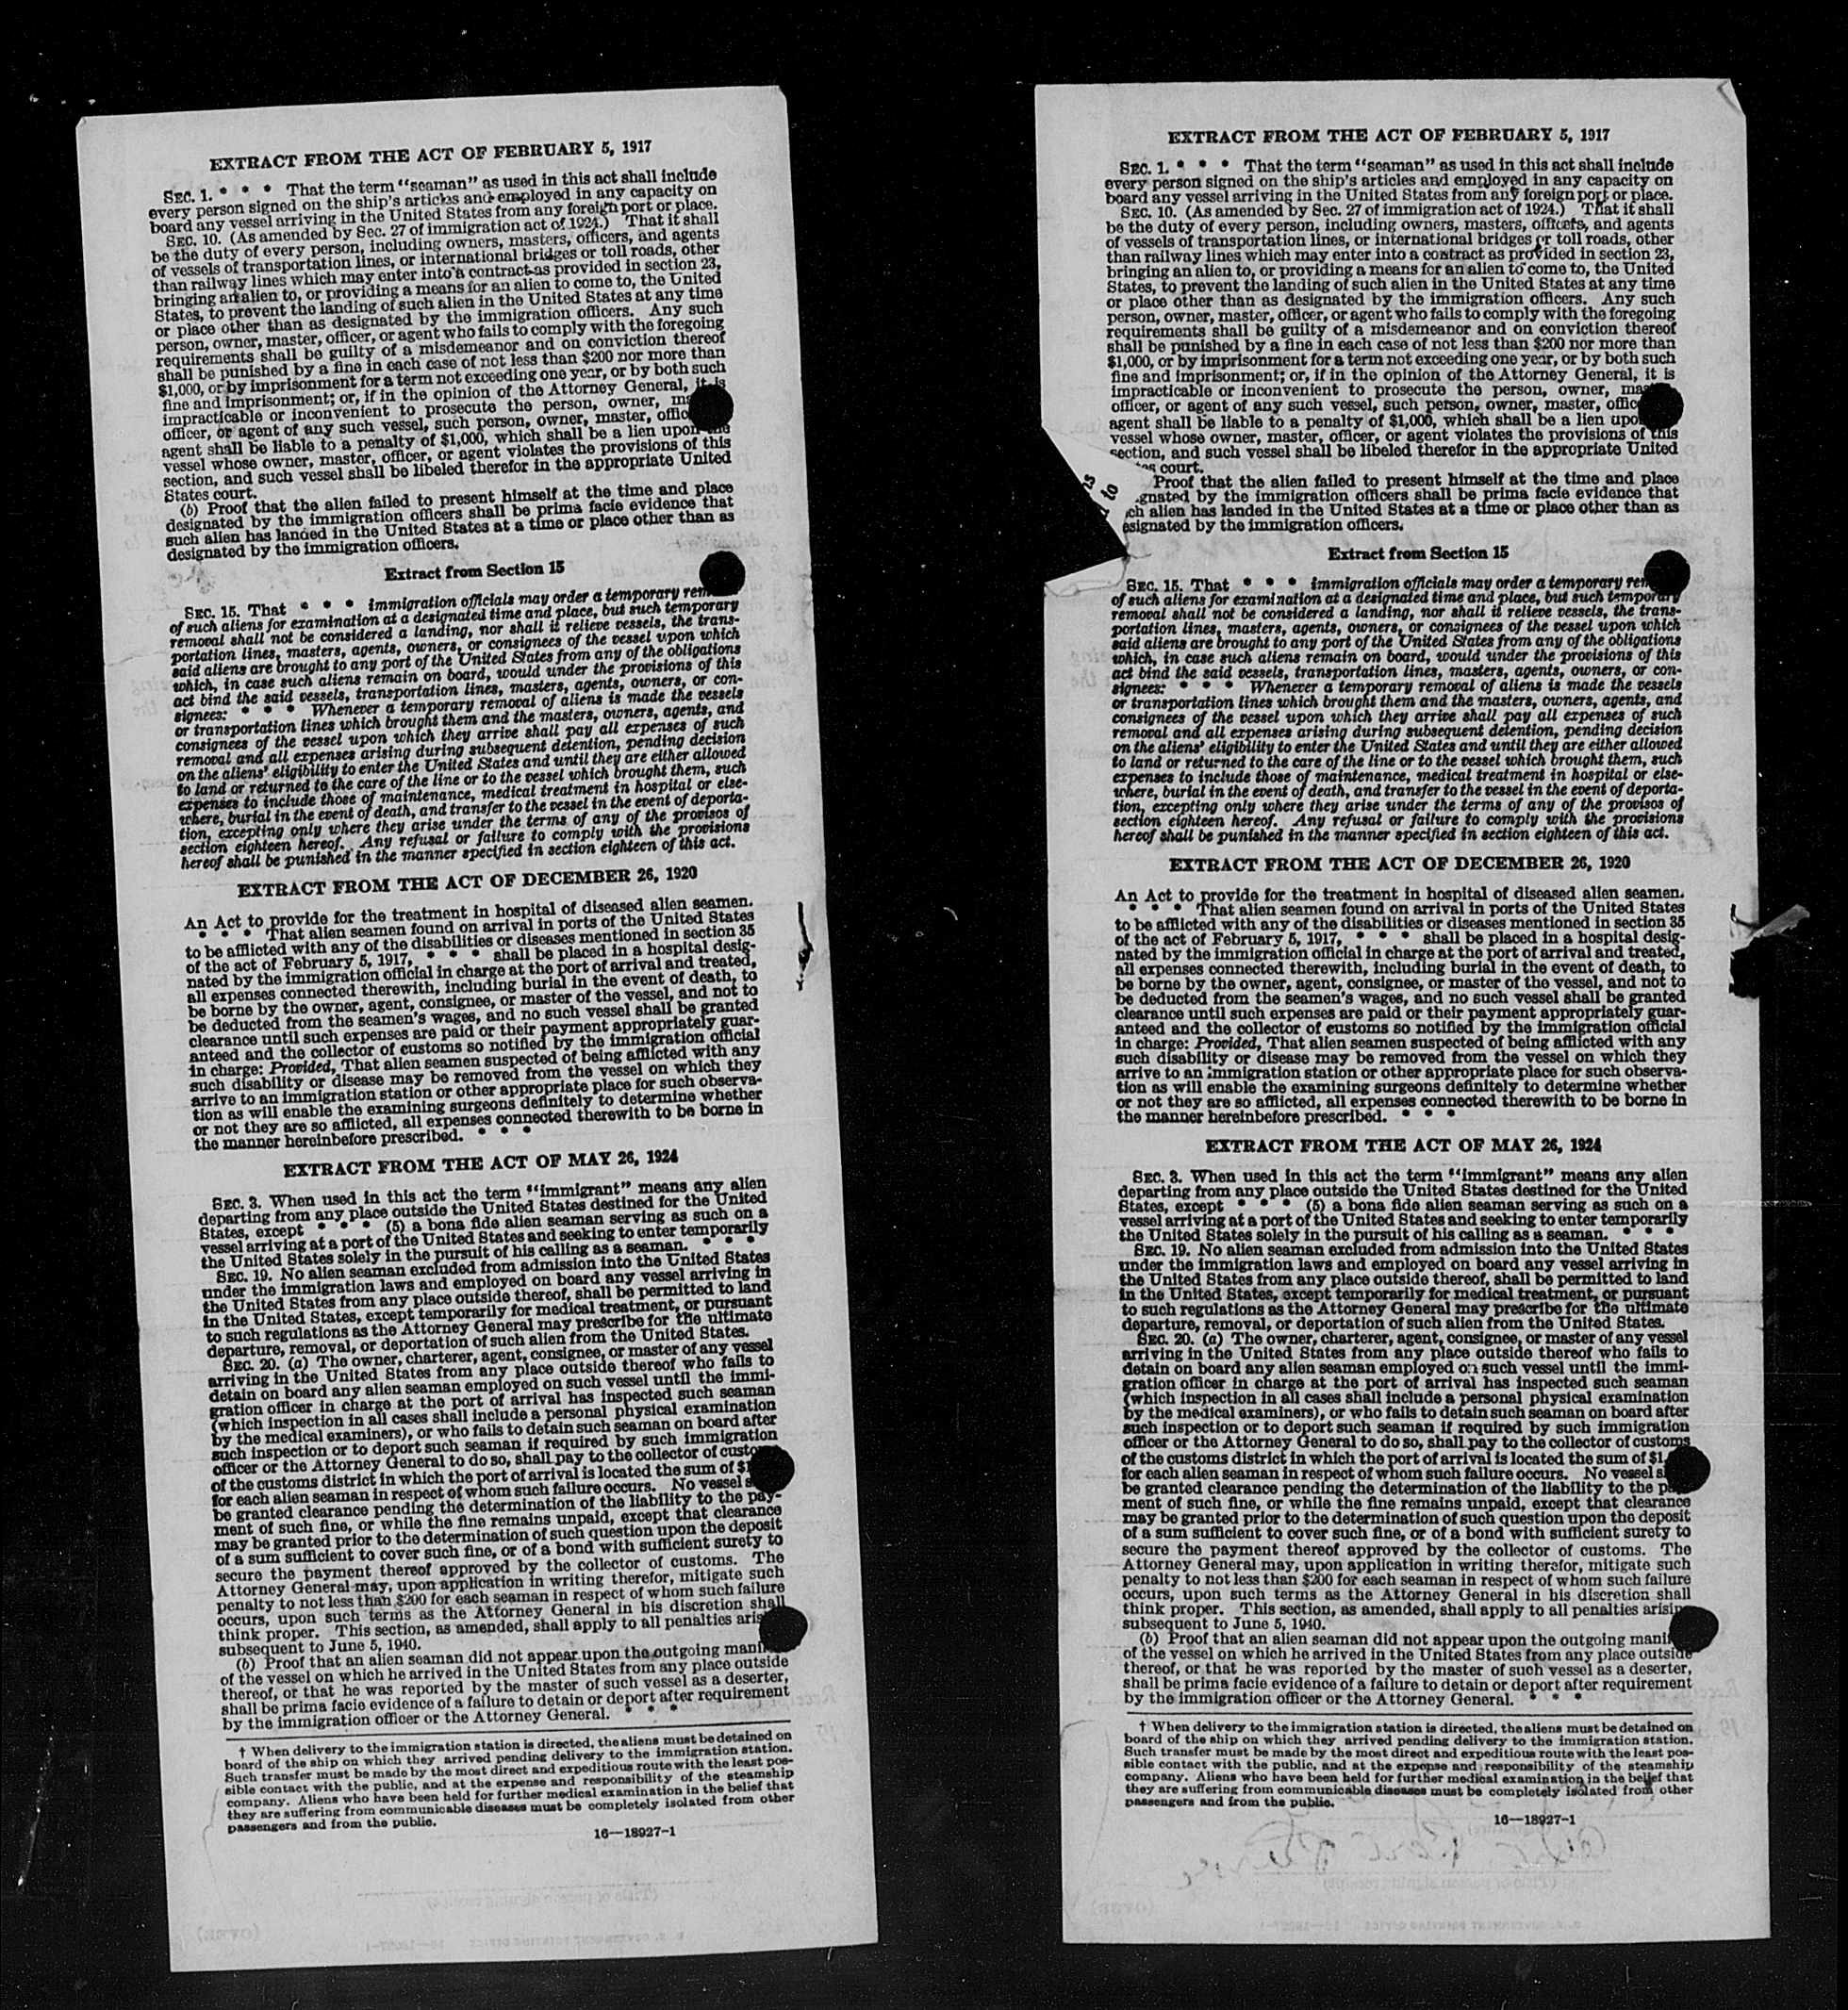 EXTRACT FROM THE ACT OF FEBRUARY 5, 1917
SEC. 1. * * * That the term "seaman" as used in this act shall include
every person signed on the ship's articles and employed in any capacity on
board any vessel arriving in the United States from any foreign port or place.
SEC. 10. (As amended by Sec. 27 of immigration act of 1924.) That it shall
be the duty of every person, including owners, masters, officers, and agents
of vessels of transportation lines, or international bridges or toll roads, other
than railway lines which may enter into a contract as provided in section 23,
bringing an alien to, or providing a means for an alien to come to, the United
States, to prevent the landing of such alien in the United States at any time
or place other than as designated by the immigration officers. Any such
person, owner, master, officer, or agent who fails to comply with the foregoing
requirements shall be guilty of a misdemeanor and on conviction thereof
shall be punished by a fine in each case of not less than $200 nor more than
$1,000, or by imprisonment for a term not exceeding one year, or by both such
fine and imprisonment; or, if in the opinion of the Attorney General, it is
impracticable or inconvenient to prosecute the person, owner,
officer, or agent of any such vessel, such person, owner, master,
agent shall be liable to a penalty of $1,000, which shall be a lien upon the
vessel whose owner, master, officer, or agent violates the provisions of this
section, and such vessel shall be libeled therefor in the appropriate United
States court.
(b) Proof that the alien failed to present himself at the time and place
designated by the immigration officers shall be prima facie evidence that
such alien has landed in the United States at a time or place other than as
designated by the immigration officers.
Extract from Section 15
SEC. 15. That * * * immigration officials may order a temporary
of such aliens for examination at a designated time and place, but such temporary
removal shall not be considered a landing, nor shall it relieve vessels, the trans-
portation lines, masters, agents, owners, or consignees of the vessel upon which
said aliens are brought to any port of the United States from any of the obligations
which, in case such aliens remain on board, would under the provisions of this
act bind the said vessels, transportation lines, masters, agents, owners, or con-
signees: * * * Whenever a temporary removal of aliens is made the vessels
or transportation lines which brought them and the masters, owners, agents, and
consignees of the vessel upon which they arrive shall pay all expenses of such
removal and all expenses arising during subsequent detention, pending decision
on the aliens' eligibility to enter the United States and until they are either allowed
to land or returned to the care of the line or to the vessel which brought them, such
expenses to include those of maintenance, medical treatment in hospital or else-
where, burial in the event of death, and transfer to the vessel in the event of deporta-
tion, excepting only where they arise under the terms of any of the provisos of
section eighteen hereof. Any refusal or failure to comply with the provisions
hereof shall be punished in the manner specified in section eighteen of this act.
EXTRACT FROM THE ACT OF DECEMBER 26, 1920
An Act to provide for the treatment in hospital of diseased alien seamen.
* * * That alien seamen found on arrival in ports of the United States
to be afflicted with any of the disabilities or diseases mentioned in section 35
of the act of February 5, 1917, * * * shall be placed in a hospital desig-
nated by the immigration official in charge at the port of arrival and treated,
all expenses connected therewith, including burial in the event of death, to
be borne by the owner, agent, consignee, or master of the vessel, and not to
be deducted from the seamen's wages, and no such vessel shall be granted
clearance until such expenses are paid or their payment appropriately guar-
anteed and the collector of customs so notified by the immigration official
in charge: Provided, That alien seamen suspected of being afflicted with any
such disability or disease may be removed from the vessel on which they
arrive to an immigration station or other appropriate place for such observa-
tion as will enable the examining surgeons definitely to determine whether
or not they are so afflicted, all expenses connected therewith to be borne in
the manner hereinbefore prescribed. * * *
EXTRACT FROM THE ACT OF MAY 26, 1924
SEC. 3. When used in this act the term "immigrant" means any alien
departing from any place outside the United States destined for the United
States, except * * * (5) a bona fide alien seaman serving as such on a
vessel arriving at a port of the United States and seeking to enter temporarily
the United States solely in the pursuit of his calling as a seaman. * * *
SEC. 19. No alien seaman excluded from admission into the United States
under the immigration laws and employed on board any vessel arriving in
the United States from any place outside thereof, shall be permitted to land
in the United States, except temporarily for medical treatment, or pursuant
to such regulations as the Attorney General may prescribe for the ultimate
departure, removal, or deportation of such alien from the United States.
SEC. 20. (a) The owner, charterer, agent, consignee, or master of any vessel
arriving in the United States from any place outside thereof who fails to
detain on board any alien seaman employed on such vessel until the immi-
gration officer in charge at the port of arrival has inspected such seaman
(which inspection in all cases shall include a personal physical examination
by the medical examiners), or who fails to detain such seaman on board after
such inspection or to deport such seaman if required by such immigration
officer or the Attorney General to do so, shall pay to the collector of customs
of the customs district in which the port of arrival is located the sum of
for each alien seaman in respect of whom such failure occurs. No vessel
be granted clearance pending the determination of the liability to the pay-
ment of such fine, or while the fine remains unpaid, except that clearance
may be granted prior to the determination of such question upon the deposit
of a sum sufficient to cover such fine, or of a bond with sufficient surety to
secure the payment thereof approved by the collector of customs. The
Attorney General may, upon application in writing therefor, mitigate such
penalty to not less than $200 for each seaman in respect of whom such failure
occurs, upon such terms as the Attorney General in his discretion shall
think proper. This section, as amended, shall apply to all penalties
subsequent to June 5, 1940.
(b) Proof that an alien seaman did not appear upon the outgoing
of the vessel on which he arrived in the United States from any place outside
thereof, or that he was reported by the master of such vessel as a deserter,
shall be prima facie evidence of a failure to detain or deport after requirement
by the immigration officer or the Attorney General. * * *
† When delivery to the immigration station is directed, the aliens must be detained on
board of the ship on which they arrived pending delivery to the immigration station.
Such transfer must be made by the most direct and expeditious route with the least pos-
sible contact with the public, and at the expense and responsibility of the steamship
company. Aliens who have been held for further medical examination in the belief that
they are suffering from communicable diseases must be completely isolated from other
passengers and from the public.
16—18927-1
EXTRACT FROM THE ACT OF FEBRUARY 5, 1917
SEC. 1. * * * That the term "seaman" as used in this act shall include
every person signed on the ship's articles and employed in any capacity on
board any vessel arriving in the United States from any foreign port or place.
SEC. 10. (As amended by Sec. 27 of immigration act of 1924.) That it shall
be the duty of every person, including owners, masters, officers, and agents
of vessels of transportation lines, or international bridges or toll roads, other
than railway lines which may enter into a contract as provided in section 23,
bringing an alien to, or providing a means for an alien to come to, the United
States, to prevent the landing of such alien in the United States at any time
or place other than as designated by the immigration officers. Any such
person, owner, master, officer, or agent who fails to comply with the foregoing
requirements shall be guilty of a misdemeanor and on conviction thereof
shall be punished by a fine in each case of not less than $200 nor more than
$1,000, or by imprisonment for a term not exceeding one year, or by both such
fine and imprisonment; or, if in the opinion of the Attorney General, it is
impracticable or inconvenient to prosecute the person, owner,
officer, or agent of any such vessel, such person, owner, master,
agent shall be liable to a penalty of $1,000, which shall be a lien
vessel whose owner, master, officer, or agent violates the provisions of this
section, and such vessel shall be libeled therefor in the appropriate United
court.
Proof that the alien failed to present himself at the time and place
by the immigration officers shall be prima facie evidence that
alien has landed in the United States at a time or place other than as
designated by the immigration officers.
Extract from Section 15
SEC. 15. That * * * immigration officials may order a temporary
of such aliens for examination at a designated time and place, but such temporary
removal shall not be considered a landing, nor shall it relieve vessels, the trans-
portation lines, masters, agents, owners, or consignees of the vessel upon which
said aliens are brought to any port of the United States from any of the obligations
which, in case such aliens remain on board, would under the provisions of this
act bind the said vessels, transportation lines, masters, agents, owners, or con-
signees: * * * Whenever a temporary removal of aliens is made the vessels
or transportation lines which brought them and the masters, owners, agents, and
consignees of the vessel upon which they arrive shall pay all expenses of such
removal and all expenses arising during subsequent detention, pending decision
on the aliens' eligibility to enter the United States and until they are either allowed
to land or returned to the care of the line or to the vessel which brought them, such
expenses to include those of maintenance, medical treatment in hospital or else-
where, burial in the event of death, and transfer to the vessel in the event of deporta-
tion, excepting only where they arise under the terms of any of the provisos of
section eighteen hereof. Any refusal or failure to comply with the provisions
hereof shall be punished in the manner specified in section eighteen of this act.
EXTRACT FROM THE ACT OF DECEMBER 26, 1920
An Act to provide for the treatment in hospital of diseased alien seamen.
* * * That alien seamen found on arrival in ports of the United States
to be afflicted with any of the disabilities or diseases mentioned in section 35
of the act of February 5, 1917, * * * shall be placed in a hospital desig-
nated by the immigration official in charge at the port of arrival and treated,
all expenses connected therewith, including burial in the event of death, to
be borne by the owner, agent, consignee, or master of the vessel, and not to
be deducted from the seamen's wages, and no such vessel shall be granted
clearance until such expenses are paid or their payment appropriately guar-
anteed and the collector of customs so notified by the immigration official
in charge: Provided, That alien seamen suspected of being afflicted with any
such disability or disease may be removed from the vessel on which they
arrive to an immigration station or other appropriate place for such observa-
tion as will enable the examining surgeons definitely to determine whether
or not they are so afflicted, all expenses connected therewith to be borne in
the manner hereinbefore prescribed. * * *
EXTRACT FROM THE ACT OF MAY 26, 1924
SEC. 3. When used in this act the term "immigrant" means any alien
departing from any place outside the United States destined for the United
States, except * * * (5) a bona fide alien seaman serving as such on a
vessel arriving at a port of the United States and seeking to enter temporarily
the United States solely in the pursuit of his calling as a seaman. * * *
SEC. 19. No alien seaman excluded from admission into the United States
under the immigration laws and employed on board any vessel arriving in
the United States from any place outside thereof, shall be permitted to land
in the United States, except temporarily for medical treatment, or pursuant
to such regulations as the Attorney General may prescribe for the ultimate
departure, removal, or deportation of such alien from the United States.
SEC. 20. (a) The owner, charterer, agent, consignee, or master of any vessel
arriving in the United States from any place outside thereof who fails to
detain on board any alien seaman employed on such vessel until the immi-
gration officer in charge at the port of arrival has inspected such seaman
(which inspection in all cases shall include a personal physical examination
by the medical examiners), or who fails to detain such seaman on board after
such inspection or to deport such seaman if required by such immigration
officer or the Attorney General to do so, shall pay to the collector of customs
of the customs district in which the port of arrival is located the sum of
for each alien seaman in respect of whom such failure occurs. No vessel
be granted clearance pending the determination of the liability to the
ment of such fine, or while the fine remains unpaid, except that clearance
may be granted prior to the determination of such question upon the deposit
of a sum sufficient to cover such fine, or of a bond with sufficient surety to
secure the payment thereof approved by the collector of customs. The
Attorney General may, upon application in writing therefor, mitigate such
penalty to not less than $200 for each seaman in respect of whom such failure
occurs, upon such terms as the Attorney General in his discretion shall
think proper. This section, as amended, shall apply to all penalties arising
subsequent to June 5, 1940.
(b) Proof that an alien seaman did not appear upon the outgoing
of the vessel on which he arrived in the United States from any place outside
thereof, or that he was reported by the master of such vessel as a deserter,
shall be prima facie evidence of a failure to detain or deport after requirement
by the immigration officer or the Attorney General. * * *
† When delivery to the immigration station is directed, the aliens must be detained on
board of the ship on which they arrived pending delivery to the immigration station.
Such transfer must be made by the most direct and expeditious route with the least pos-
sible contact with the public, and at the expense and responsibility of the steamship
company. Aliens who have been held for further medical examination in the belief that
they are suffering from communicable diseases must be completely isolated from other
passengers and from the public.
16—18927-1